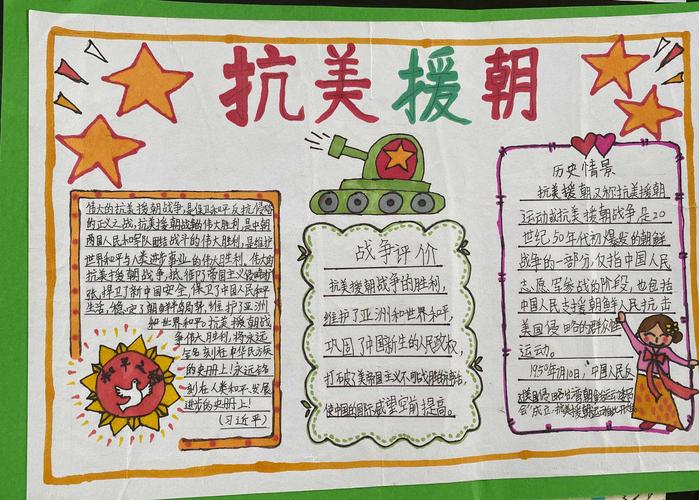 抗美援朝
伟大的抗美援朝战争,是保卫和平反抗侵略
的正义之战,抗美援朝战争的伟大胜利,是中朝
两国人民和军队团结战斗的伟大胜利,是维护
世界和平与人类进步事业的伟大胜利。伟大的
抗美援朝战争,抵御了帝国主义侵略扩
张,捍卫了新中国安全,保卫了中国人民和平
生活,稳定了朝鲜半岛局势,维护了亚洲
和世界和平。抗美援朝战
争伟大胜利,将永远
铭刻在中华民族
的史册上!永远铭
刻在人类和平、发展
进步的史册上!
(习近平)
和平之
战争评价
抗美援朝战争的胜利,
维护了亚洲和世界和平,
巩固了中国新生的人民政权,
打破了美帝国主义不可战胜的神话,
使中国的国际威望空前提高。
历史情景
抗美援朝又称抗美援朝
运动或抗美援朝战争是20
世纪50年代初爆发的朝鲜
战争的一部分,仅指中国人民
志愿军参战的阶段,也包括
中国人民支援朝鲜人民抗击
美国侵略的群众性
运动。
1950年7月10日,中国人民反
对美国侵略台湾朝鲜运动委员
会"成立,抗美援朝运动